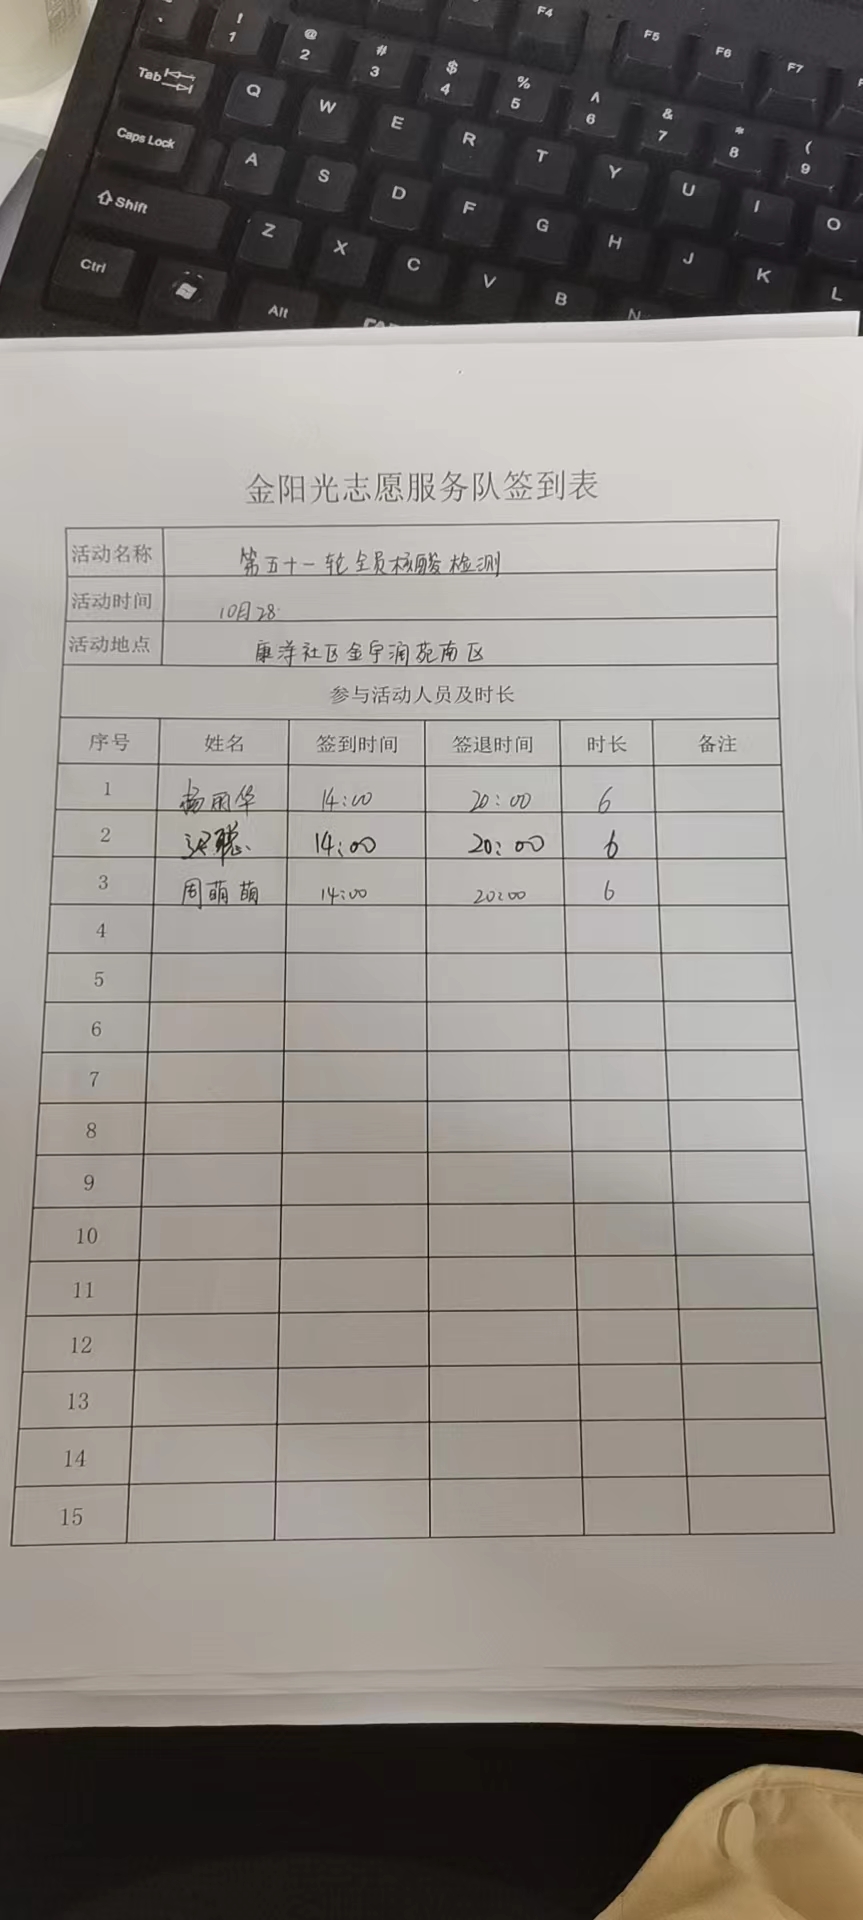 ! @ # $ % ^ & * (
` 1 2 3 4 5 6 7 8 9
F4 F5 F6 F7
Tab Q W E R T Y U I O
Caps Lock A S D F G H J K L
Shift Z X C V B N
Ctrl Alt
金阳光志愿服务队签到表
活动名称 第五十一轮全员核酸检测
活动时间 10月28
活动地点 康洋社区金宇润苑南区
参与活动人员及时长
序号 姓名 签到时间 签退时间 时长 备注
1 杨丽华 14:00 20:00 6
2 聪 14:00 20:00 6
3 周萌萌 14:00 20:00 6
4
5
6
7
8
9
10
11
12
13
14
15